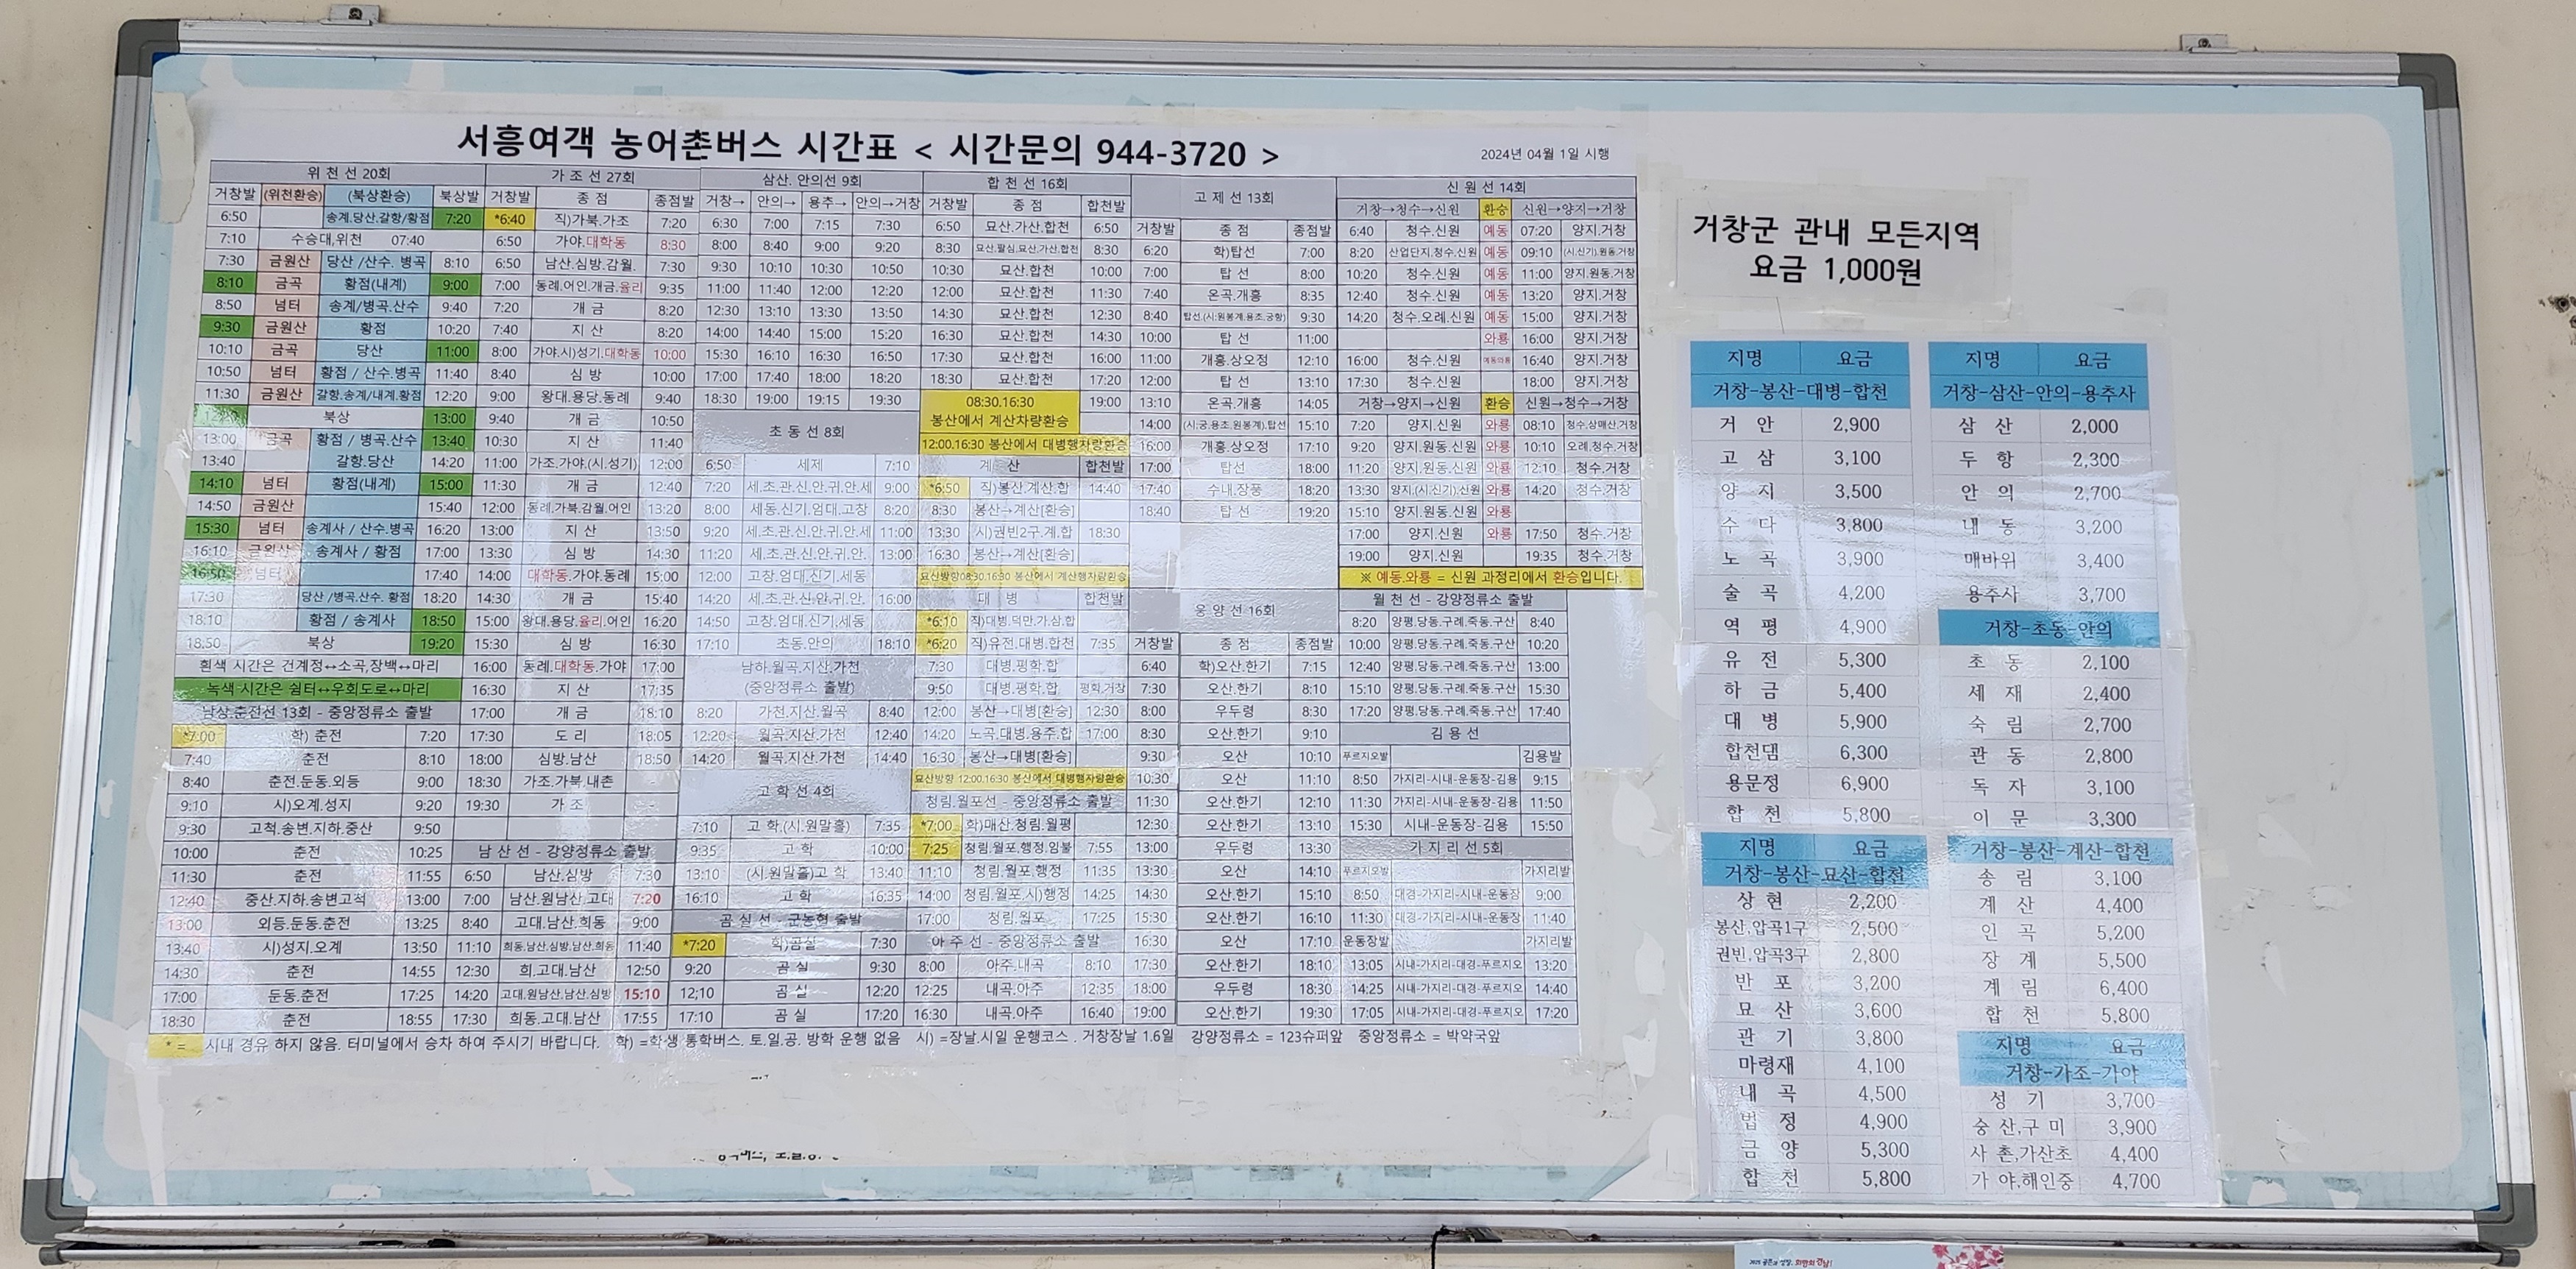 서흥여객 농어촌버스 시간표 < 시간문의 944-3720 >
2024년 04월 1일 시행
위 천 선 20회
거창발 (위천환승) (북상환승) 북상발
6:50 송계.당산.갈항/황점 7:20
7:10 수승대,위천 07:40
7:30 금원산 당산 /산수. 병곡 8:10
8:10 금곡 황점(내계) 9:00
8:50 넘터 송계/병곡.산수 9:40
9:30 금원산 황점 10:20
10:10 금곡 당산 11:00
10:50 넘터 황점 / 산수.병곡 11:40
11:30 금원산 갈항.송계/내계.황점 12:20
북상 13:00
13:00 금곡 황점 / 병곡.산수 13:40
13:40 갈항.당산 14:20
14:10 넘터 황점(내계) 15:00
14:50 금원산 15:40
15:30 넘터 송계사 / 산수.병곡 16:20
16:10 금원산 송계사 / 황점 17:00
16:50 넘터 17:40
17:30 당산 /병곡.산수. 황점 18:20
18:10 황점 / 송계사 18:50
18:50 북상 19:20
흰색 시간은 건계정↔소곡,장백↔마리
녹색 시간은 쉼터↔우회도로↔마리
남상.춘전선 13회 - 중앙정류소 출발
*7:00 학) 춘전 7:20
7:40 춘전 8:10
8:40 춘전.둔동.외등 9:00
9:10 시)오계.성지 9:20
9:30 고척.송변.지하.중산 9:50
10:00 춘전 10:25
11:30 춘전 11:55
12:40 중산.지하.송변고척 13:00
13:00 외등.둔동.춘전 13:25
13:40 시)성지.오계 13:50
14:30 춘전 14:55
17:00 둔동.춘전 17:25
18:30 춘전 18:55
가 조 선 27회
거창발 종 점 종점발
*6:40 직)가북.가조 7:20
6:50 가야.대학동 8:30
6:50 남산.심방.감월. 7:30
7:00 동례.어인.개금.율리 9:35
7:20 개 금 8:20
7:40 지 산 8:20
8:00 가야.시)성기.대학동 10:00
8:40 심 방 10:00
9:00 왕대.용당.동례 9:40
9:40 개 금 10:50
10:30 지 산 11:40
11:00 가조.가야.(시.성기) 12:00
11:30 개 금 12:40
12:00 동례.가북.감월.어인 13:20
13:00 지 산 13:50
13:30 심 방 14:30
14:00 대학동.가야.동례 15:00
14:30 개 금 15:40
15:00 왕대.용당.율리.어인 16:20
15:30 심 방 16:30
16:00 동례.대학동.가야 17:00
16:30 지 산 17:35
17:00 개 금 18:10
17:30 도 리 18:05
18:00 심방.남산 18:50
18:30 가조.가북.내촌
19:30 가 조
남 산 선 - 강양정류소 출발
6:50 남산.심방 7:30
7:00 남산.원남산.고대 7:20
8:40 고대.남산.희동 9:00
11:10 희동,남산,심방,남산,희동 11:40
12:30 희.고대.남산 12:50
14:20 고대.원남산.남산.심방 15:10
17:30 희동.고대.남산 17:55
삼산. 안의선 9회
거창→ 안의→ 용추→ 안의→거창
6:30 7:00 7:15 7:30
8:00 8:40 9:00 9:20
9:30 10:10 10:30 10:50
11:00 11:40 12:00 12:20
12:30 13:10 13:30 13:50
14:00 14:40 15:00 15:20
15:30 16:10 16:30 16:50
17:00 17:40 18:00 18:20
18:30 19:00 19:15 19:30
초 동 선 8회
6:50 세제 7:10
7:20 세.초.관.신.안.귀.안.세 9:00
8:00 세동.신기.엄대.고창 8:20
9:20 세.초.관.신.안.귀.안.세 11:00
11:20 세.초.관.신.안.귀.안. 13:00
12:00 고창.엄대.신기.세동
14:20 세.초.관.신.안.귀.안. 16:00
14:50 고창.엄대.신기.세동
17:10 초동.안의 18:10
남하.월곡.지산.가천
(중앙정류소 출발)
8:20 가천.지산.월곡 8:40
12:20 월곡.지산.가천 12:40
14:20 월곡.지산.가천 14:40
고 학 선 4회
7:10 고 학.(시.원말흘) 7:35
9:35 고 학 10:00
13:10 (시.원말흘)고 학 13:40
16:10 고 학 16:35
곰 실 선 - 군농협 출발
*7:20 학)곰실 7:30
9:20 곰 실 9:30
12;10 곰 실 12:20
17:10 곰 실 17:20
합 천 선 16회
거창발 종 점 합천발
6:50 묘산.가산.합천 6:50
8:30 묘산.팔심.묘산.가산.합천 8:30
10:30 묘산.합천 10:00
12:00 묘산.합천 11:30
14:30 묘산.합천 12:30
16:30 묘산.합천 14:30
17:30 묘산.합천 16:00
18:30 묘산.합천 17:20
08:30.16:30
봉산에서 계산차량환승 19:00
12:00.16:30 봉산에서 대병행차량환승
계 산 합천발
*6:50 직)봉산.계산.합 14:40
8:30 봉산→계산[환승]
13:30 시)권빈2구.계.합 18:30
16:30 봉산→계산[환승]
묘산방향08:30.16:30 봉산에서 계산행차량환승
대 병 합천발
*6:10 직)대병.덕만.가.삼.합
*6:20 직)유전.대병.합천 7:35
7:30 대병.평학.합
9:50 대병.평학.합 평학.거창
12:00 봉산→대병[환승] 12:30
14:20 노곡.대병.용주.합 17:00
16:30 봉산→대병[환승]
묘산방향 12:00.16:30 봉산에서 대병행차량환승
청림.월포선 - 중앙정류소 출발
*7:00 학)매산.청림.월평
7:25 청림.월포.행정.임불 7:55
11:10 청림.월포.행정 11:35
14:00 청림.월포.시)행정 14:25
17:00 청림.월포 17:25
아 주 선 - 중앙정류소 출발
8:00 아주.내곡 8:10
12:25 내곡.아주 12:35
16:30 내곡.아주 16:40
고 제 선 13회
거창발 종 점 종점발
6:20 학)탑선 7:00
7:00 탑 선 8:00
7:40 온곡.개흥 8:35
8:40 탑선.(시:원봉계.용초.궁항) 9:30
10:00 탑 선 11:00
11:00 개흥.상오정 12:10
12:00 탑 선 13:10
13:10 온곡.개흥 14:05
14:00 (시;궁.용초.원봉계).탑선 15:10
16:00 개흥.상오정 17:10
17:00 탑선 18:00
17:40 수내.장풍 18:20
18:40 탑 선 19:20
웅 양 선 16회
거창발 종 점 종점발
6:40 학)오산.한기 7:15
7:30 오산.한기 8:10
8:00 우두령 8:30
8:30 오산.한기 9:10
9:30 오산 10:10
10:30 오산 11:10
11:30 오산.한기 12:10
12:30 오산.한기 13:10
13:00 우두령 13:30
13:30 오산 14:10
14:30 오산.한기 15:10
15:30 오산.한기 16:10
16:30 오산 17:10
17:30 오산.한기 18:10
18:00 우두령 18:30
19:00 오산.한기 19:30
신 원 선 14회
거창→청수→신원 환승 신원→양지→거창
6:40 청수.신원 예동 07:20 양지.거창
8:20 산업단지.청수.신원 예동 09:10 (시.신기).원동.거창
10:20 청수.신원 예동 11:00 양지.원동.거창
12:40 청수.신원 예동 13:20 양지.거창
14:20 청수.오례.신원 예동 15:00 양지.거창
와룡 16:00 양지.거창
16:00 청수.신원 예동와룡 16:40 양지.거창
17:30 청수.신원 18:00 양지.거창
거창→양지→신원 환승 신원→청수→거창
7:20 양지.신원 와룡 08:10 청수.상매산.거창
9:20 양지.원동.신원 와룡 10:10 오례.청수.거창
11:20 양지.원동.신원 와룡 12:10 청수.거창
13:30 양지.(시.신기).신원 와룡 14:20 청수.거창
15:10 양지.원동.신원 와룡
17:00 양지.신원 와룡 17:50 청수.거창
19:00 양지.신원 19:35 청수.거창
※ 예동.와룡 = 신원 과정리에서 환승입니다.
월 천 선 - 강양정류소 출발
8:20 양평.당동.구례.죽동.구산 8:40
10:00 양평.당동.구례.죽동.구산 10:20
12:40 양평.당동.구례.죽동.구산 13:00
15:10 양평.당동.구례.죽동.구산 15:30
17:20 양평.당동.구례.죽동.구산 17:40
김 용 선
푸르지오발 김용발
8:50 가지리-시내-운동장-김용 9:15
11:30 가지리-시내-운동장-김용 11:50
15:30 시내-운동장-김용 15:50
가 지 리 선 5회
푸르지오발 가지리발
8:50 대경-가지리-시내-운동장 9:00
11:30 대경-가지리-시내-운동장 11:40
운동장발 가지리발
13:05 시내-가지리-대경-푸르지오 13:20
14:25 시내-가지리-대경-푸르지오 14:40
17:05 시내-가지리-대경-푸르지오 17:20
* = 시내 경유 하지 않음. 터미널에서 승차 하여 주시기 바랍니다. 학) =학생 통학버스. 토.일.공. 방학 운행 없음 시) =장날.시일 운행코스 . 거창장날 1.6일 강양정류소 = 123슈퍼앞 중앙정류소 = 박약국앞
거창군 관내 모든지역
요금 1,000원
지명 요금
거창-봉산-대병-합천
거 안 2,900
고 삼 3,100
양 지 3,500
수 다 3,800
노 곡 3,900
술 곡 4,200
역 평 4,900
유 전 5,300
하 금 5,400
대 병 5,900
합천댐 6,300
용문정 6,900
합 천 5,800
지명 요금
거창-봉산-묘산-합천
상 현 2,200
봉산,압곡1구 2,500
권빈,압곡3구 2,800
반 포 3,200
묘 산 3,600
관 기 3,800
마령재 4,100
내 곡 4,500
법 정 4,900
금 양 5,300
합 천 5,800
지명 요금
거창-삼산-안의-용추사
삼 산 2,000
두 항 2,300
안 의 2,700
내 동 3,200
매바위 3,400
용추사 3,700
거창-초동-안의
초 동 2,100
세 재 2,400
숙 림 2,700
관 동 2,800
독 자 3,100
이 문 3,300
거창-봉산-계산-합천
송 림 3,100
계 산 4,400
인 곡 5,200
장 계 5,500
계 림 6,400
합 천 5,800
지명 요금
거창-가조-가야
성 기 3,700
숭 산,구 미 3,900
사 촌,가산초 4,400
가 야,해인중 4,700